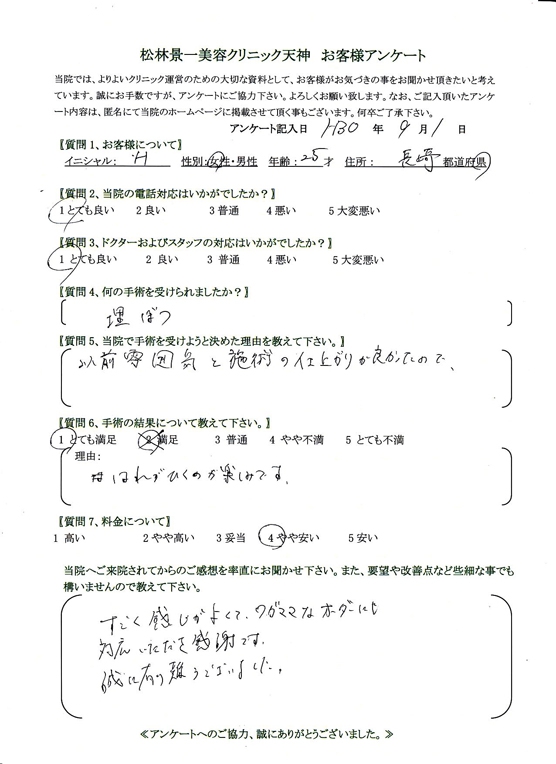 松林景一美容クリニック天神 お客様アンケート
当院では、よりよいクリニック運営のための大切な資料として、お客様がお気づきの事をお聞かせ頂きたいと考え
ています。誠にお手数ですが、アンケートにご協力下さい。よろしくお願い致します。なお、ご記入頂いたアンケ
ート内容は、匿名にて当院のホームページに掲載させて頂く事もございます。何卒ご了承下さい。
アンケート記入日 H30 年 9 月 1 日
〖質問1、お客様について〗
イニシャル: H 性別:女性・男性 年齢:25才 住所: 長崎 都道府県
〖質問2、当院の電話対応はいかがでしたか?〗
1とても良い 2良い 3普通 4悪い 5大変悪い
〖質問3、ドクターおよびスタッフの対応はいかがでしたか?〗
1とても良い 2良い 3普通 4悪い 5大変悪い
〖質問4、何の手術を受けられましたか?〗
埋ぼつ
〖質問5、当院で手術を受けようと決めた理由を教えて下さい。〗
以前雰囲気と施術の仕上がりが良かたので、
〖質問6、手術の結果について教えて下さい。〗
1とても満足 2満足 3普通 4やや不満 5とても不満
理由:
はれがひくのが楽しみです。
〖質問7、料金について〗
1高い 2やや高い 3妥当 4やや安い 5安い
当院へご来院されてからのご感想を率直にお聞かせ下さい。また、要望や改善点など些細な事でも
構いませんので教えて下さい。
すごく感じがよくて、ワガママなオーダーにも
対応いただき感謝です。
誠に有り難うございました。
≪アンケートへのご協力、誠にありがとうございました。≫